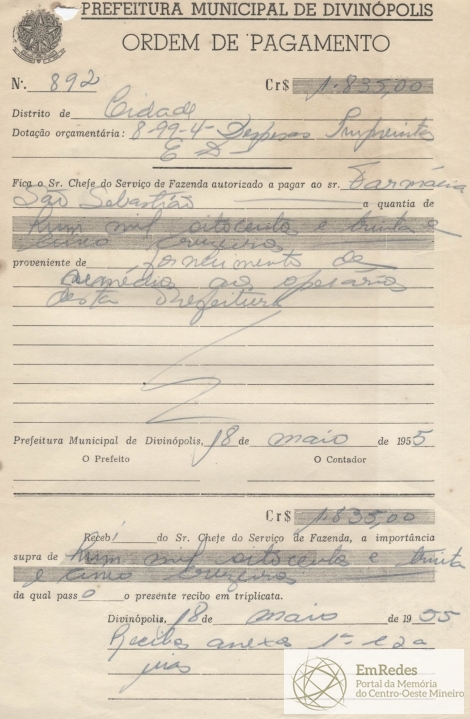 PREFEITURA MUNICIPAL DE DIVINÓPOLIS
ORDEM DE PAGAMENTO
N.º 892 Cr$ 1.835,00
Distrito de Cidade
Dotação orçamentária: 8-99-4- Despesas
Fica o Sr. Chefe do Serviço de Fazenda autorizado a pagar ao sr. Farmácia
São Sebastião a quantia de
hum mil oitocento e trinta e
cinco cruzeiros
proveniente de fornecimento de
remédio ao operários
desta Prefeitura
Prefeitura Municipal de Divinópolis, 18 de maio de 1955
O Prefeito O Contador
Cr$ 1.835,00
Recebi do Sr. Chefe do Serviço de Fazenda, a importância
supra de hum mil oitocento e trinta
e cinco cruzeiros
da qual passo o presente recibo em triplicata.
Divinópolis, 18 de maio de 1955
Recibos anexos 1ª e 2ª
vias
EmRedes
Portal da Memória
do Centro-Oeste Mineiro